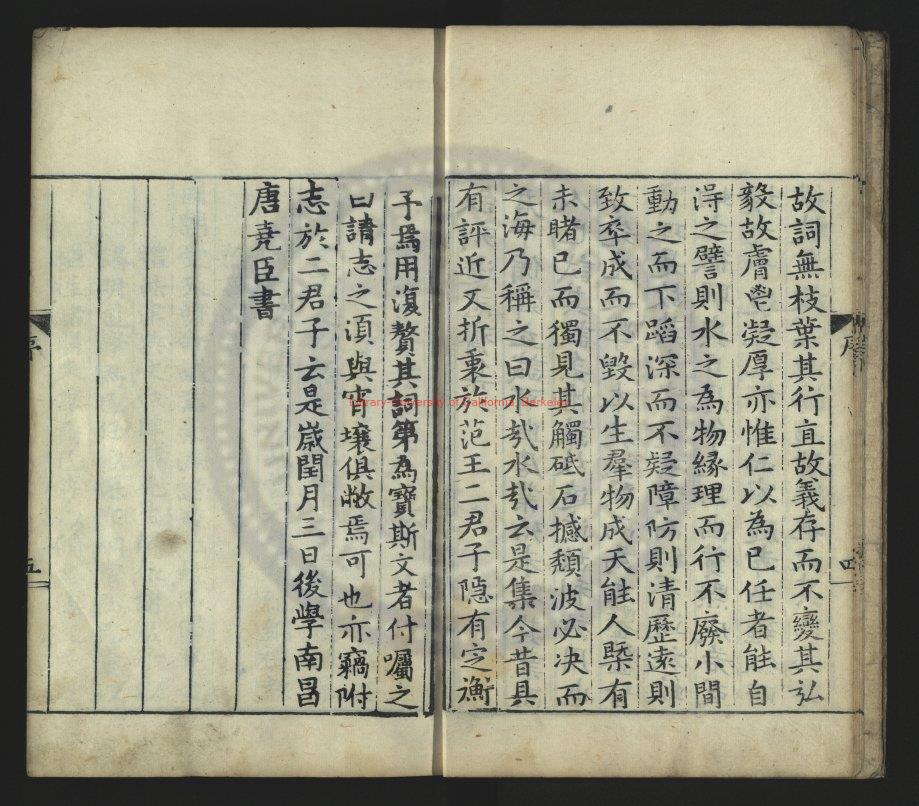 故詞無枝葉其行直故義存而不變其弘
毅故膚鬯凝厚亦惟仁以為已任者能自
淂之譬則水之為物緣理而行不廢小間
動之而下蹈深而不疑障防則清歷遠則
致卒成而不毀以生羣物成天能人槩有
未睹已而獨見其觸砥石撼頽波必决而
之海乃稱之曰水㢤水㢤云是集今昔具
有評近又折衷於范王二君子隱有定衡
予焉用復贅其詞第為寶斯文者付囑之
曰請志之湏與宵壤俱敝焉可也亦竊附
志於二君子云是歲閏月三日後學南昌
唐堯臣書
序
四
五
Library-University of California, Berkeley